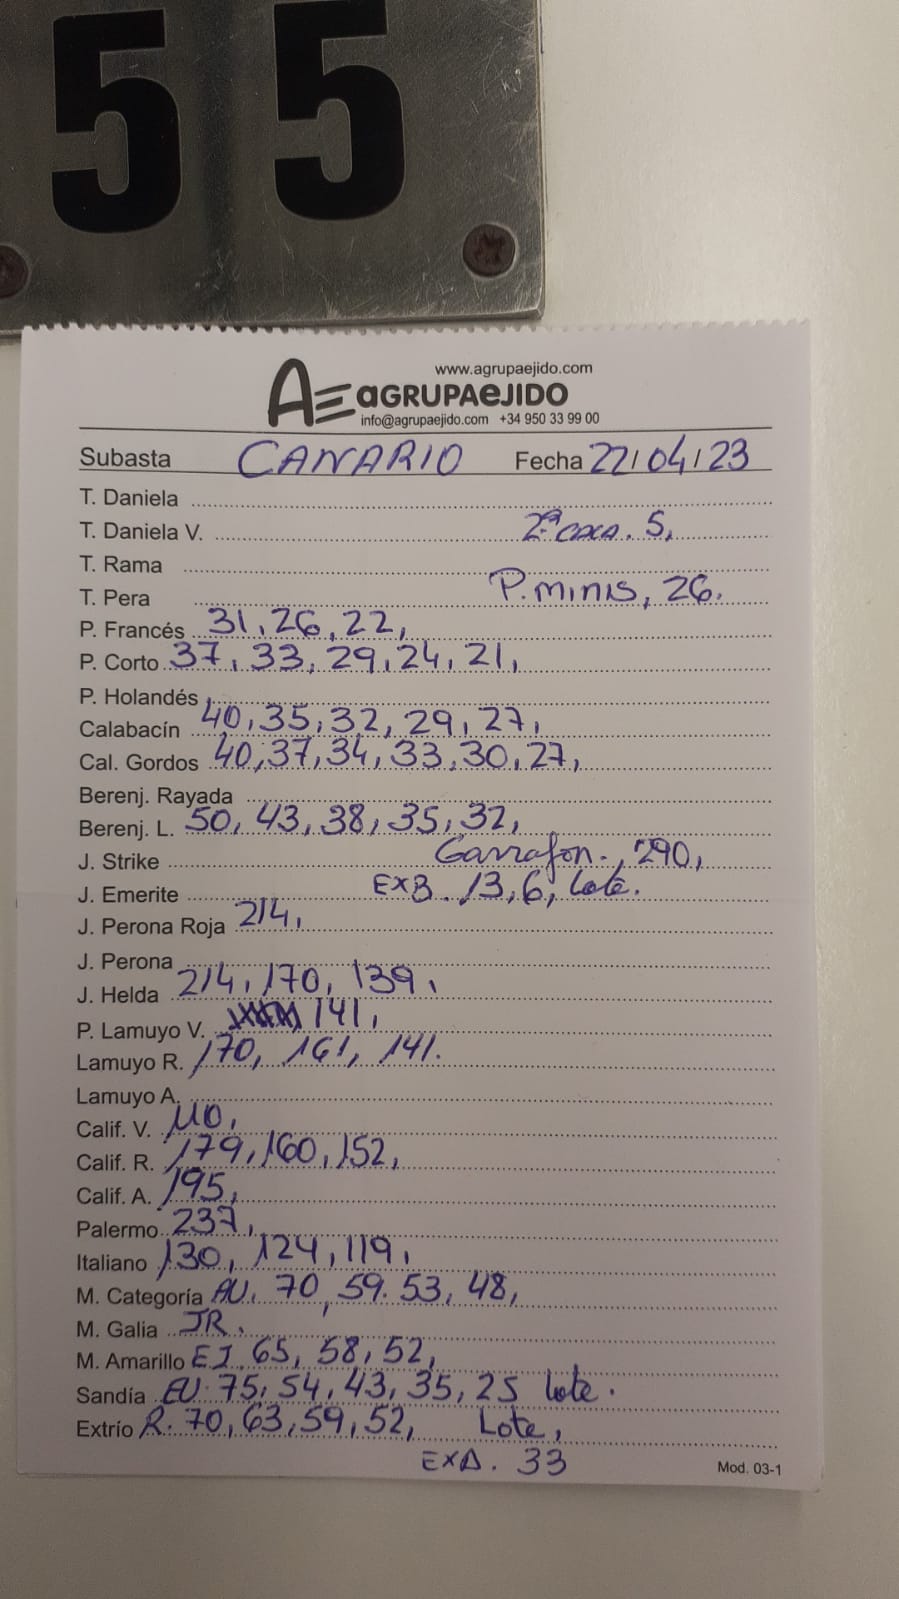 55
www.agrupaejido.com
AE aGRUPAeJIDO
info@agrupaejido.com +34 950 33 99 00
Subasta CANARIO Fecha 22/04/23
T. Daniela
T. Daniela V. 2ª caxa. 5,
T. Rama
T. Pera P. minis, 26.
P. Francés 31, 26, 22,
P. Corto 37, 33, 29, 24, 21,
P. Holandés
Calabacín 40, 35, 32, 29, 27,
Cal. Gordos 40, 37, 34, 33, 30, 27,
Berenj. Rayada
Berenj. L. 50, 43, 38, 35, 32,
J. Strike Garrafon., 290,
J. Emerite EXB. 13, 6, Lote.
J. Perona Roja 214,
J. Perona
J. Helda 214, 170, 139,
P. Lamuyo V. 141,
Lamuyo R. 170, 161, 141.
Lamuyo A.
Calif. V. 110,
Calif. R. 179, 160, 152,
Calif. A. 195,
Palermo 237,
Italiano 130, 124, 119,
M. Categoría AU. 70, 59. 53, 48,
M. Galia JR.
M. Amarillo EJ. 65, 58, 52,
Sandía EU. 75, 54, 43, 35, 25 lote.
Extrío R. 70, 63, 59, 52, Lote,
EXA. 33
Mod. 03-1